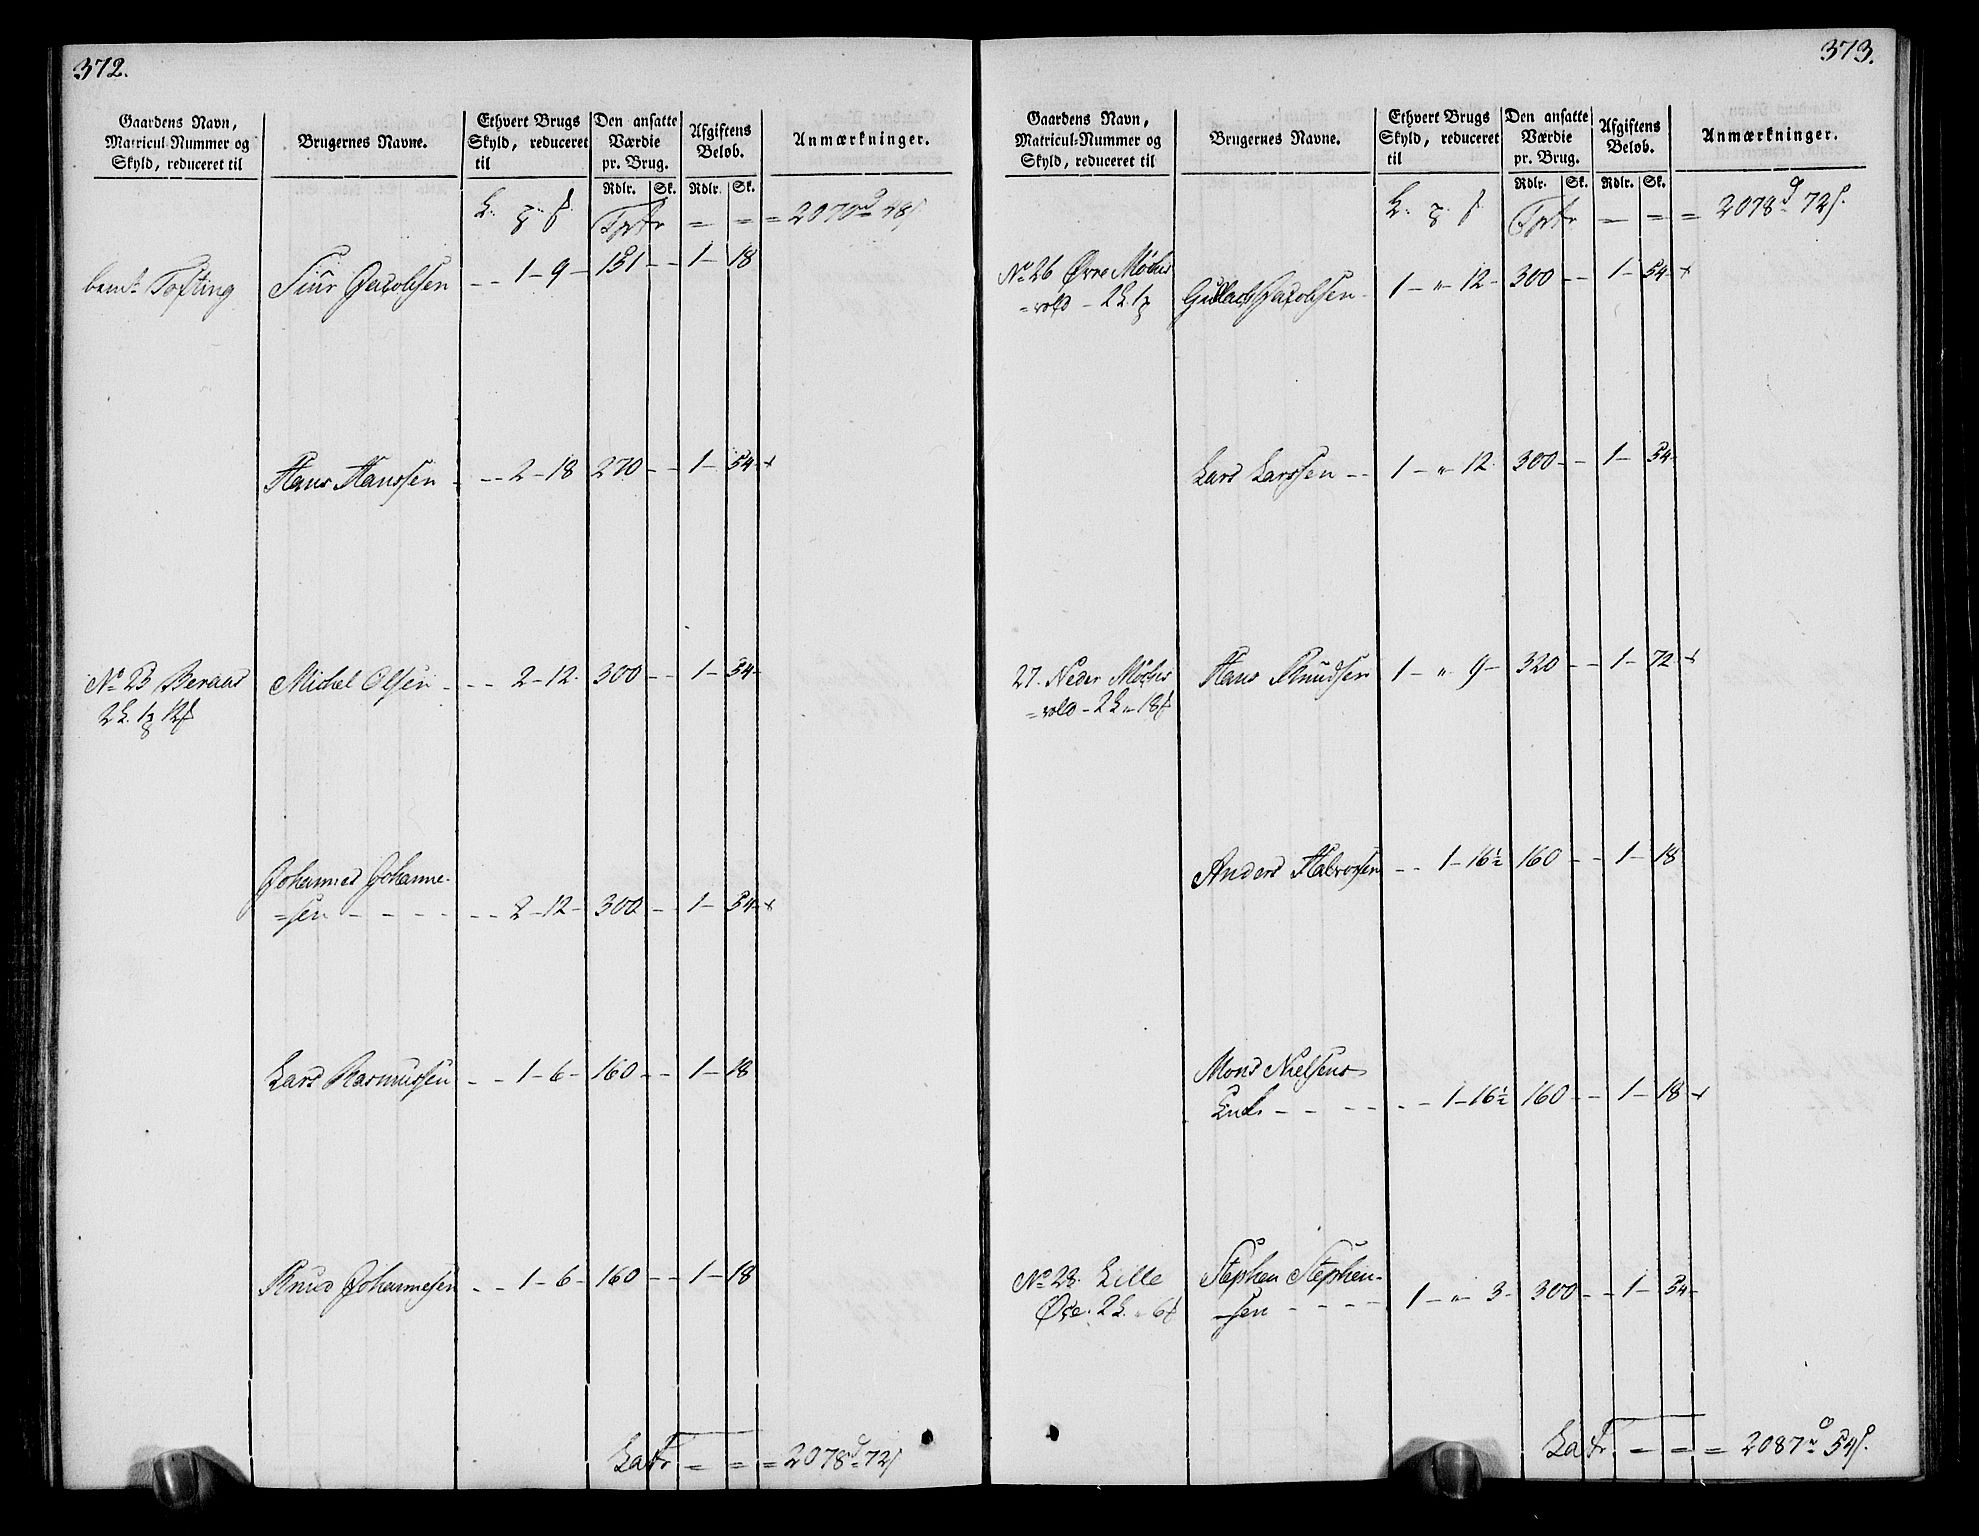 372.
Gaardens Navn, Matricul-Nummer og Skyld, reduceret til
Brugernes Navne.
Ethvert Brugs Skyld, reduceret til
Den ansatte Værdie pr. Brug.
Afgiftens Beløb.
Anmærkninger.
Rdlr. Sk. Rdlr. Sk.
Tptr = = = 2070 48
bemt Tofting Siur Jacobsen - - 1-9- 131 - - 1- 18
Hans Hanssen - - - 2-18 270 - - 1- 54 +
No 23 Beraas Michel Olsen - - - 2-12- 300 - - 1- 54-
2 L. 1 12
Johannes Johanne-
=sen - - - - - - 2-12- 300 - - 1- 54 +
Lars Rasmussen - - 1-6- 160 - - 1- 18
Knud Johannesen - - 1-6- 160 - - 1- 18
Latr = = = 2078 72
373.
Gaardens Navn, Matricul-Nummer og Skyld, reduceret til
Brugernes Navne.
Ethvert Brugs Skyld, reduceret til
Den ansatte Værdie pr. Brug.
Afgiftens Beløb.
Anmærkninger.
Rdlr. Sk. Rdlr. Sk.
Tptr = = = 2078 72
No 26 Øvre
=vold - 2 L. 1 Jacobsen - 1 - " 12- 300 - - 1- 54- +
Lars Larssen - - 1 - " 12 300 - - 1- 54-
27. Neder Hans Knudsen 1 - " 9- 320 - - 1- 72 +
=vold - 2 L " 18
Anders Halvorsen - - 1-16½ 160 - - 1- 18
Mons Nielsens
Enke - - - - - - 1-16½ 160 - - 1- 18 +
No 28. Lille Stephen Stephen-
Øse. 2 L. " 6 =sen - - - - 1 - " 3- 300 - - 1- 54-
Latr = = = 2087 54